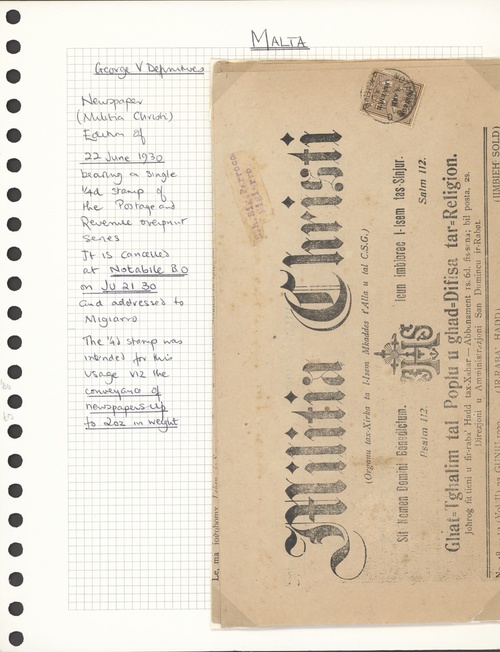 MALTA
George V Definitives
Newspaper
(Militia Christi)
Edition of
22 June 1930
bearing a single
¼d stamp of
the Postage and
Revenue overprint
series
It is cancelled
at Notabile B.O
on JU 21 30
and addressed to
Migiarro
The ¼d stamp was
intended for this
usage viz the
conveyance of
newspapers up
to 2oz in weight
Militia Christi
(Organu tax-Xirka ta l-Isem Mkaddes t'Alla u tal C.S.G.)
Sit Nomen Domini Benedictum.
Psalm 112.
IHS
Icun imbierec l-Isem tas-Sinjur.
Salm 112.
Ghat-Tghalim tal Poplu u ghad-Difisa tar-Religion.
Johrog fit-tieni u fir-raba' Hadd tax-Xahar — Abbonament 1s. 6d. fis-sena; bil posta, 2s.
Direzjoni u Amministrazjoni San Dumincu ir-Rabat.
Le, ma